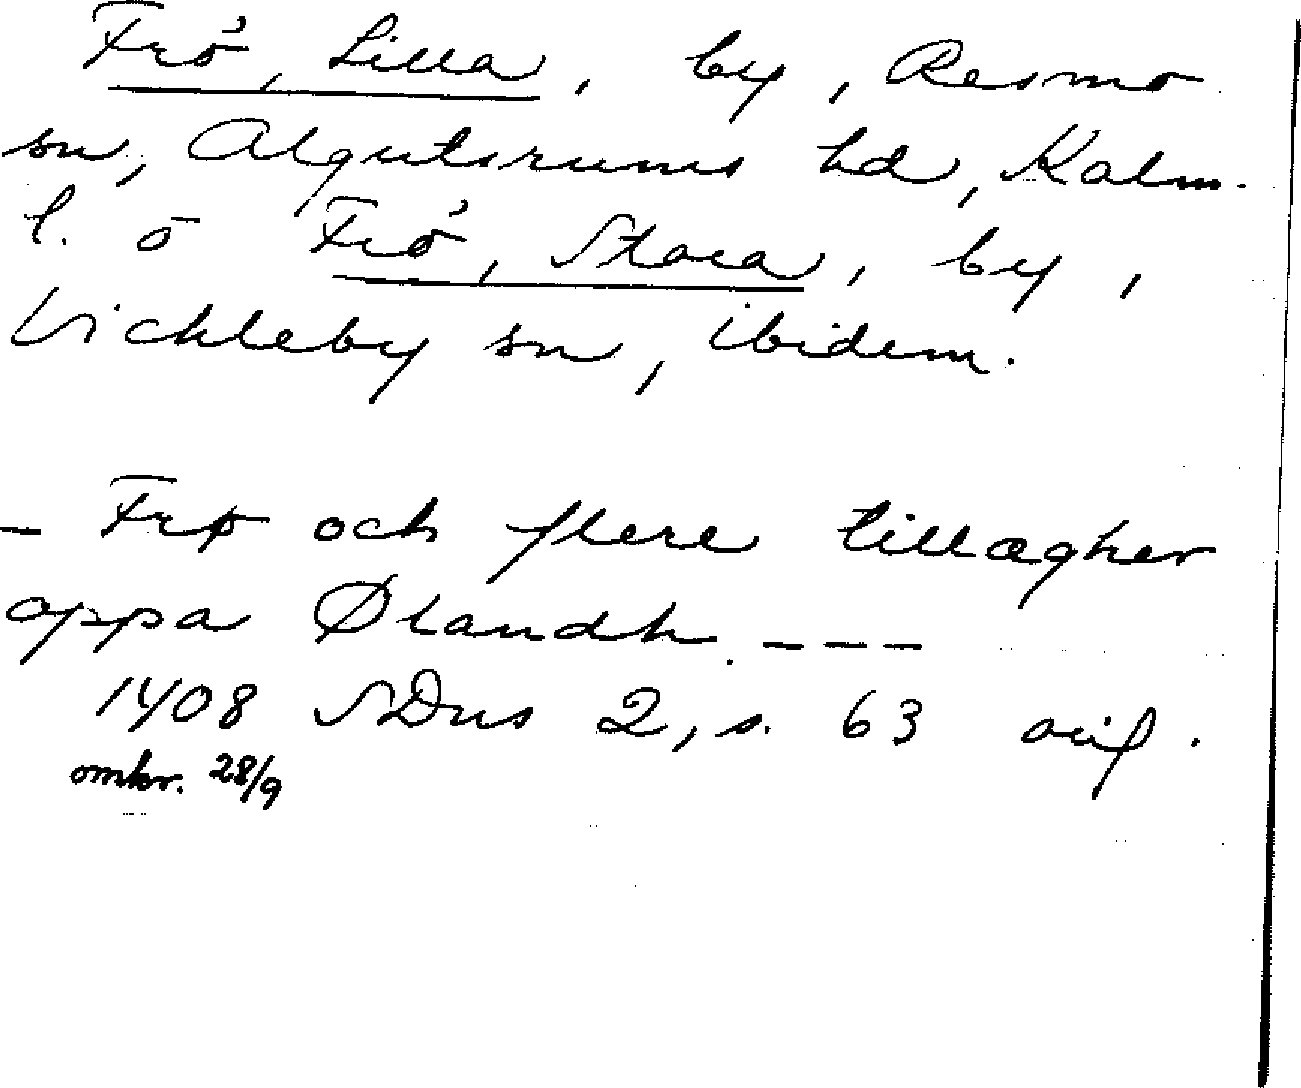 Frö, Lilla, by, Resmo
sn, Algutsrums hd, Kalm.
l. o Frö, Stora, by,
Vickleby sn, ibidem.
– Frø och flere tillægher
oppa Ølandh. – – –
1408 SDns 2, s. 63 avs.
omkr. 28/9